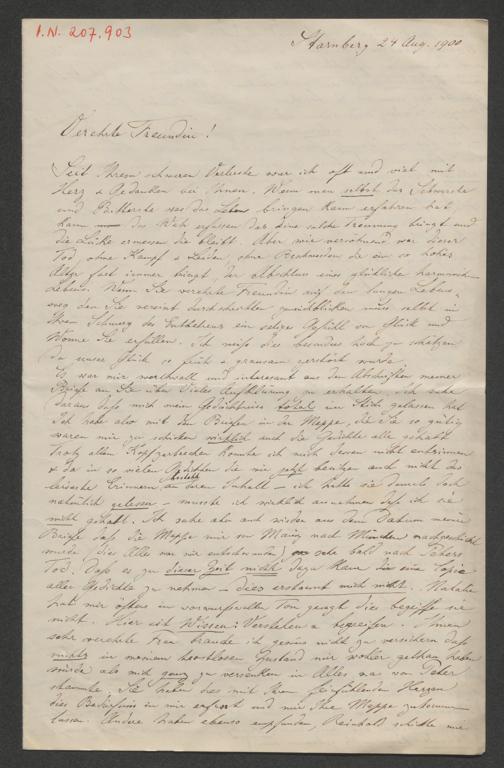 I.N. 207.903
Starnberg 24 Aug. 1900
Verehrte Freundin!
Seit Ihrem schweren Verluste war ich oft und viel mit
Herz & Gedanken bei Ihnen. Wenn man selbst das Schwerste
und Bitterste was das Leben bringen kann erfahren hat,
kann man das Weh erfassen das eine solche Trennung bringt und
die Lücke ermessen die bleibt. Aber wie versöhnend war dieser
Tod, ohne Kampf & Leiden, ohne die ein so hohes
Alter fast immer bringt, der Abschluss eines glücklich harmonisch
Lebens. Wenn Sie verehrte Freundin auf den langen Lebens-
weg den Sie vereint durchschritten zurückblicken muss selbst in
Ihrem Schmerz des Entbehrens ein seliges Gefühl von Glück und
Wonne Sie erfüllen. Ich weiß dies besonders hoch zu schätzen
da unser Glück so früh & grausam zerstört wurde.
Es war mir werthvoll und interessant aus den Abschriften meiner
Briefe an Sie über Vieles Aufklärung zu erhalten. Ich sehe
daraus daß mich mein Gedächtniss total im Stich gelassen hat.
Ich habe also mit den Briefen in der Mappe, die Sie so gütig
waren mir zu schicken wirklich auch die Gedichte alle gehabt.
Trotz allem Kopfzerbrechen konnte ich mich dessen nicht entsinnen
& da in so vielen Gedichten die wir jetzt besitzen auch nicht das
leiseste Erinnern an deren Inhalt – ich hätte sie damals doch
natürlich gelesen – musste ich wirklich annehmen daß ich sie
nicht gehabt. Ich sehe also auch wieder aus dem Datum meiner
Briefe daß die Mappe mir von Mainz nach München nachgeschickt
wurde (dies Alles war mir entschwunden) sehr bald nach Peters
Tod! Daß es zu dieser Zeit nicht dazu kam die eine Copie
aller Gedichte zu nehmen – dies erstaunt mich nicht. Natalie
hat mir öfters in vorwurfsvollem Ton gesagt dies begreife sie
nicht. Hier ist Wissen: Verstehen & begreifen. Ihnen
sehr verehrte Frau brauche ich gewiss nicht zu versichern daß
nichts in meinem trostlosen Zustand mir wohler gethan haben
würde als mich ganz zu versenken in Alles was von Peter
stammte. Sie haben dies mit Ihrem feinfühlenden Herzen
dies Bedürfniss in mir erfasst und mir Ihre Mappe zukommen
lassen. Andere haben ebenso empfunden, Reinhold schickte mir